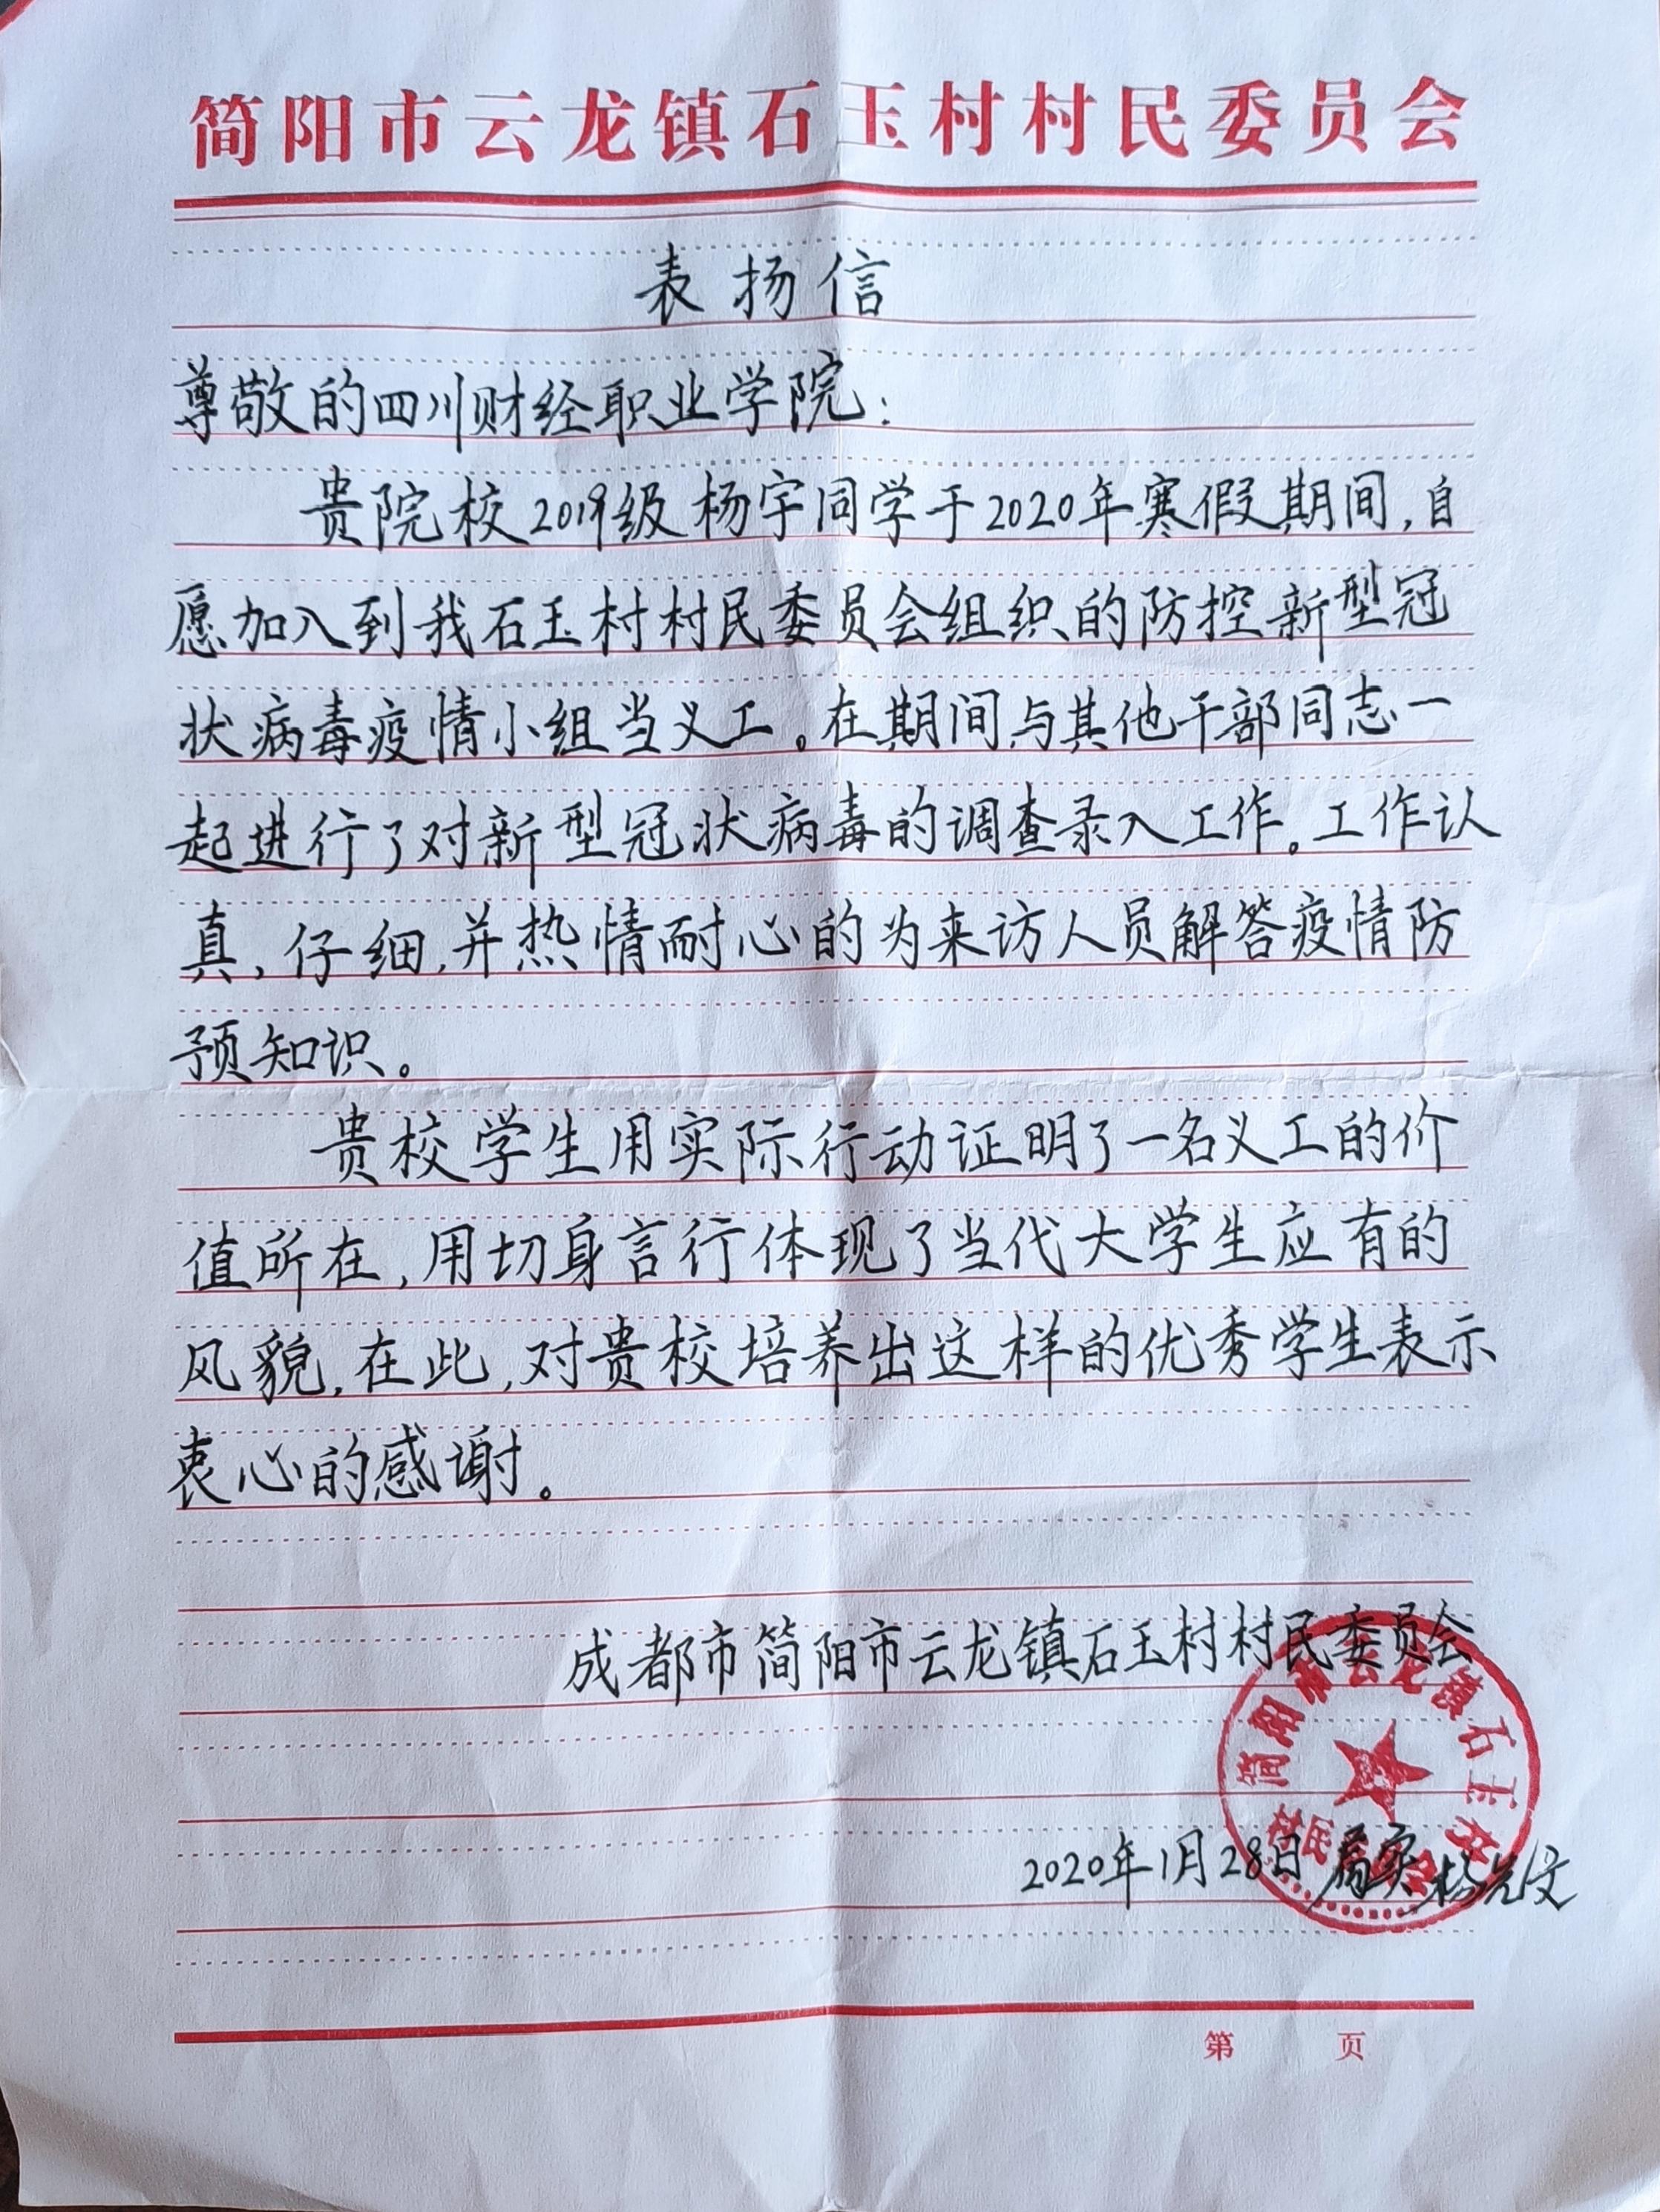 简阳市云龙镇石玉村村民委员会
表扬信
尊敬的四川财经职业学院：
贵院校2019级杨宇同学于2020年寒假期间，自
愿加入到我石玉村村民委员会组织的防控新型冠
状病毒疫情小组当义工。在期间与其他干部同志一
起进行了对新型冠状病毒的调查录入工作。工作认
真，仔细，并热情耐心的为来访人员解答疫情防
预知识。
贵校学生用实际行动证明了一名义工的价
值所在，用切身言行体现了当代大学生应有的
风貌，在此，对贵校培养出这样的优秀学生表示
衷心的感谢。
成都市简阳市云龙镇石玉村村民委员会
简阳市云龙镇石玉村
村民委员会
2020年1月28日 属实
第 页